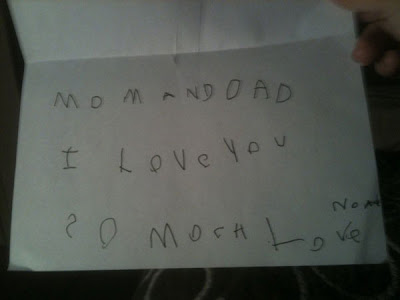 MOM AND DAD
I LOVe YOU
SO MOCH LOVe
NOM